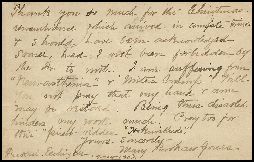 Thank you so much for the Christmas
remembrance which arrived in complete time
& should have been acknowledged
sooner, had I not been forbidden by
the Dr. to write. I am suffering from
"Neurasthenia" & "Writer's Cramp". Will
you not pray that my hand & arm
may be restored. Being thus disabled
hinders my work much. Pray too for
this "priest-ridden"
Yours Sincerely
Mary